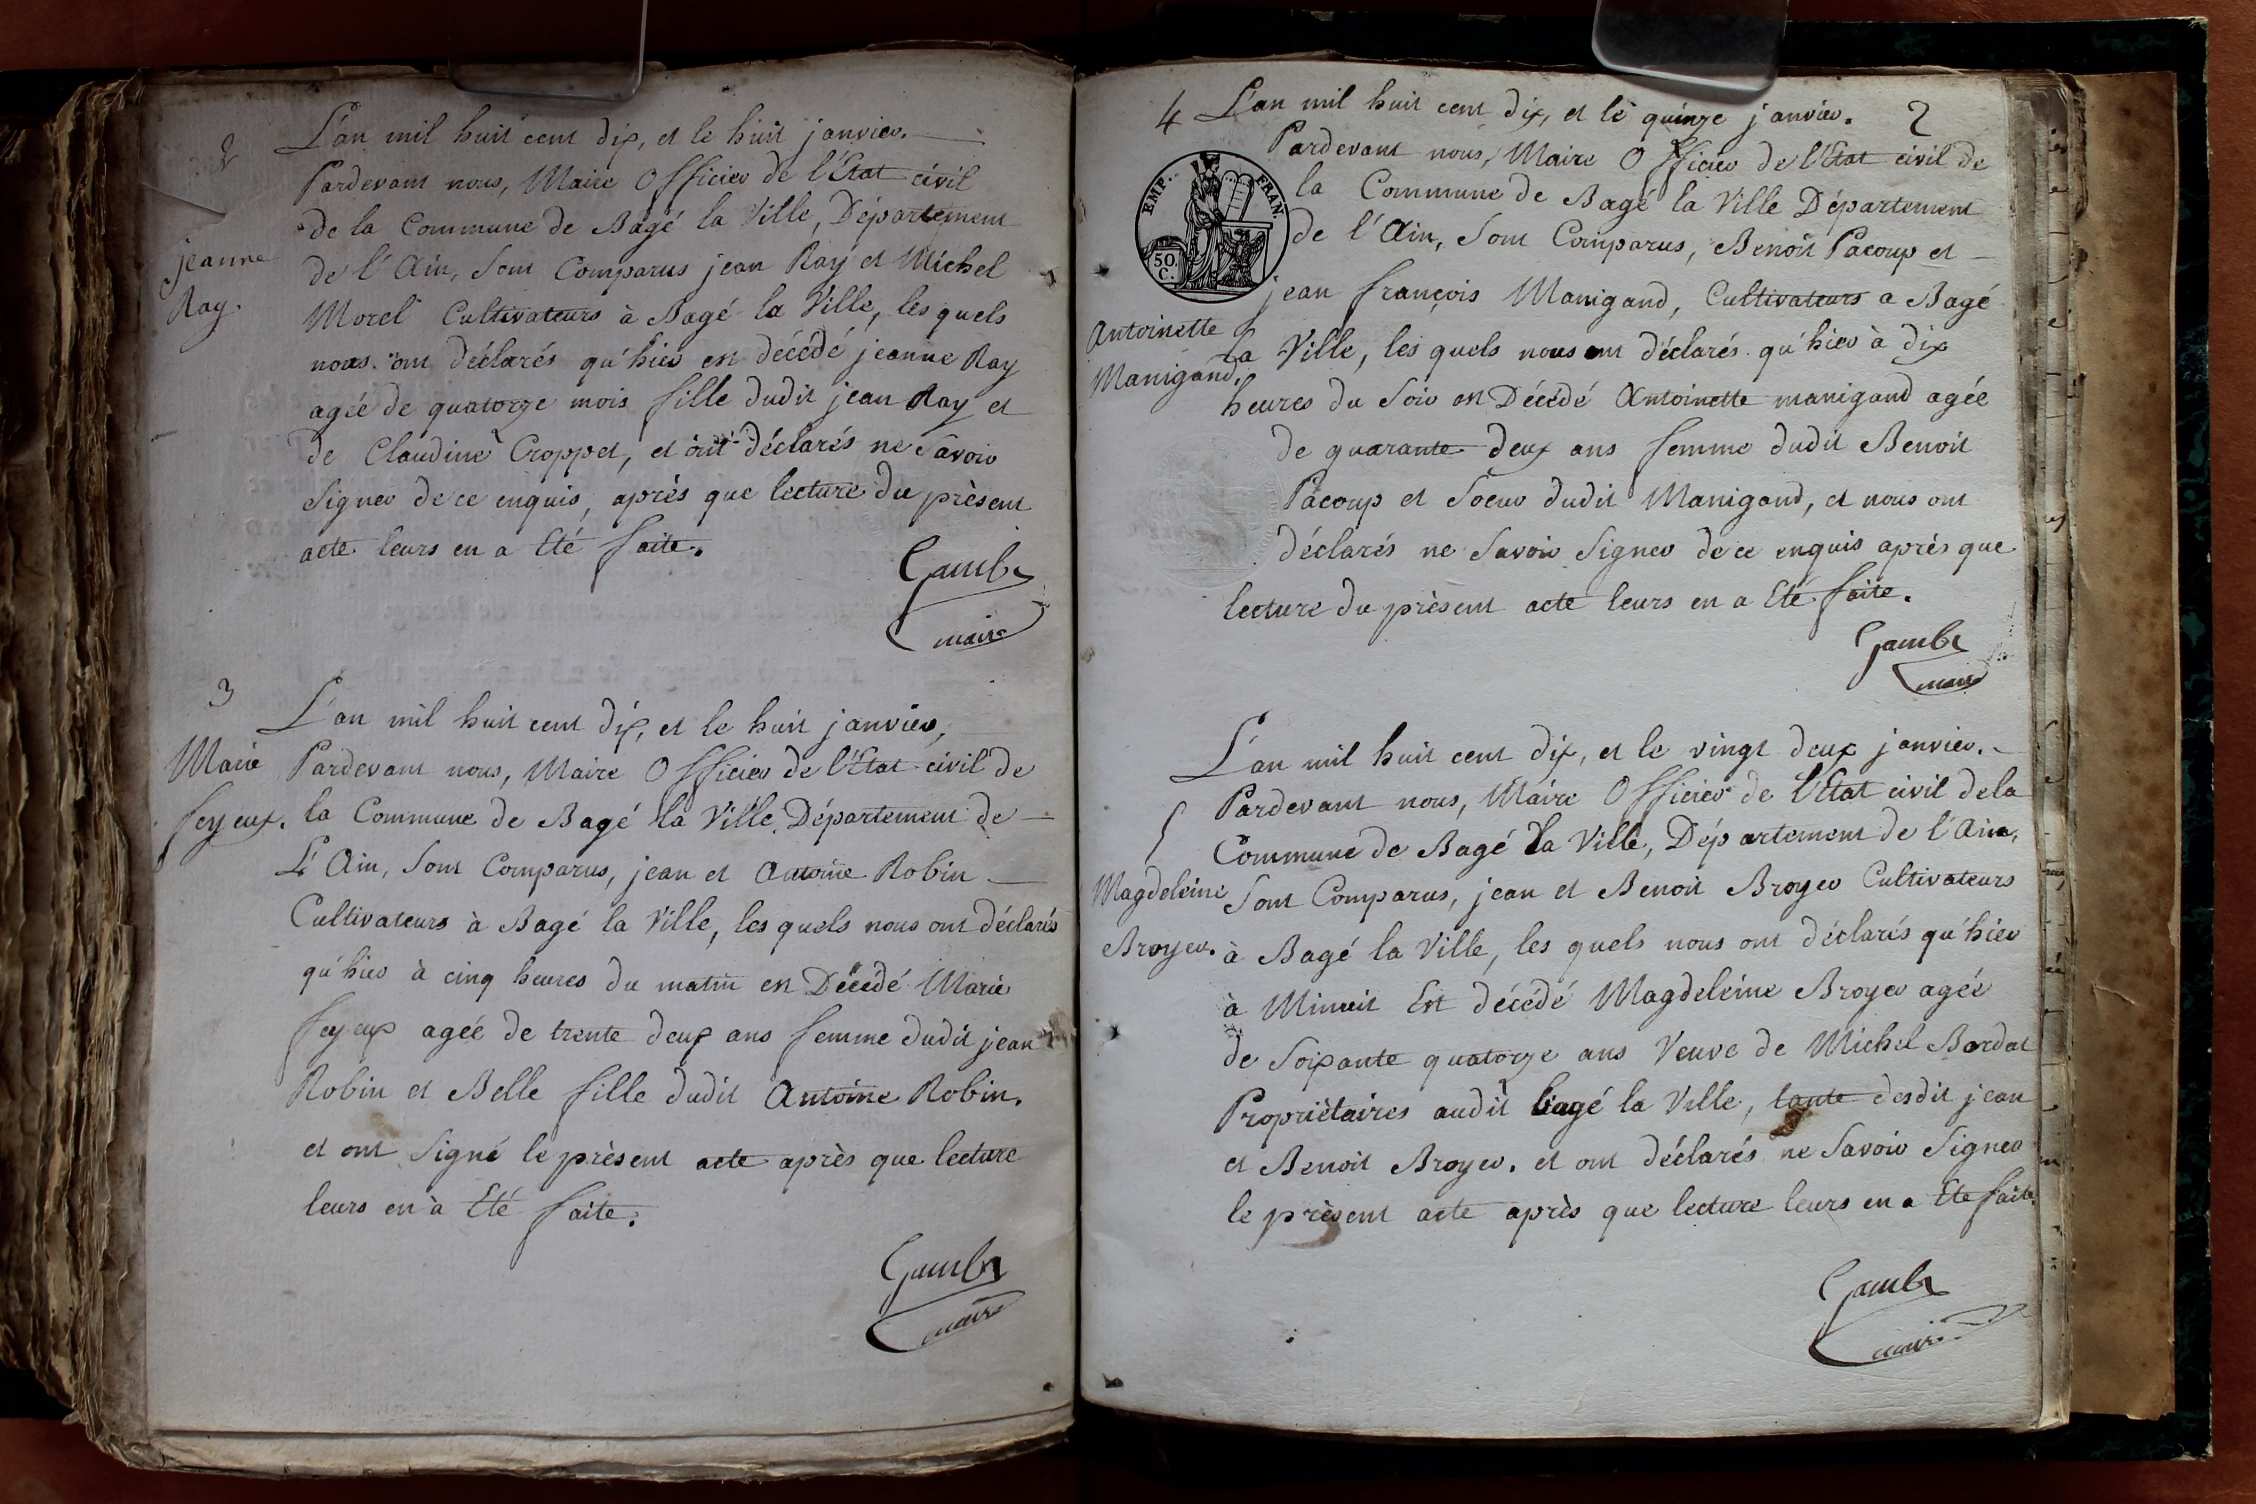 2
jeanne
Ray.
L'an mil huit cent dix, et le huit janvier.
Pardevant nous, Maire Officier de l'Etat civil
de la Commune de Bagé la Ville, Département
de l'Ain, Sont Comparus jean Ray et Michel
Morel Cultivateurs à Bagé la Ville, les quels
nous ont déclarés qu'hier est décédé jeanne Ray
agée de quatorze mois fille dudit jean Ray et
de Claudine Croppet, et ont déclarés ne Savoir
Signer de ce enquis, après que lecture du présent
acte leurs en a Eté faite.
Gambr
maire
3
Marie
feyeux.
L'an mil huit cent dix, et le huit janvier,
Pardevant nous, Maire Officier de l'Etat civil de
la Commune de Bagé la Ville, Département de
L'Ain, Sont Comparus, jean et Antoine Robin
Cultivateurs à Bagé la Ville, les quels nous ont déclarés
qu'hier à cinq heures du matin est Décédé Marie
feyeux agée de trente deux ans femme dudit jean
Robin et Belle fille dudit Antoine Robin.
et ont Signé le présent acte après que lecture
leurs en à Eté faite.
Gambr
maire
2
4
L'an mil huit cent dix, et le quinze janvier.
EMP. FRAN.
50 C.
Antoinette
Manigand.
Pardevant nous, Maire Officier de l'Etat civil de
la Commune de Bagé la Ville Département
de l'Ain, Sont Comparus, Benoit Pacoup et
jean françois Manigand, Cultivateurs a Bagé
la Ville, les quels nous ont déclarés qu'hier à dix
heures du Soir est Décédé Antoinette manigand agée
de quarante deux ans femme dudit Benoit
Pacoup et Soeur dudit Manigand, et nous ont
déclarés ne Savoir Signer de ce enquis après que
lecture du présent acte leurs en a Eté faite.
Gambr
maire
5
Magdeleine
Broyer.
L'an mil huit cent dix, et le vingt deux janvier.
Pardevant nous, Maire Officier de l'Etat civil de la
Commune de Bagé la Ville, Département de l'Ain,
Sont Comparus, jean et Benoit Broyer Cultivateurs
à Bagé la Ville, les quels nous ont déclarés qu'hier
à Minuit Est décédé Magdeleine Broyer agée
de Soixante quatorze ans Veuve de Michel Bordat
Propriétaires audit bagé la Ville, tante desdit jean
et Benoit Broyer. et ont déclarés ne Savoir Signer
le présent acte après que lecture leurs en a Eté faite.
Gambr
maire